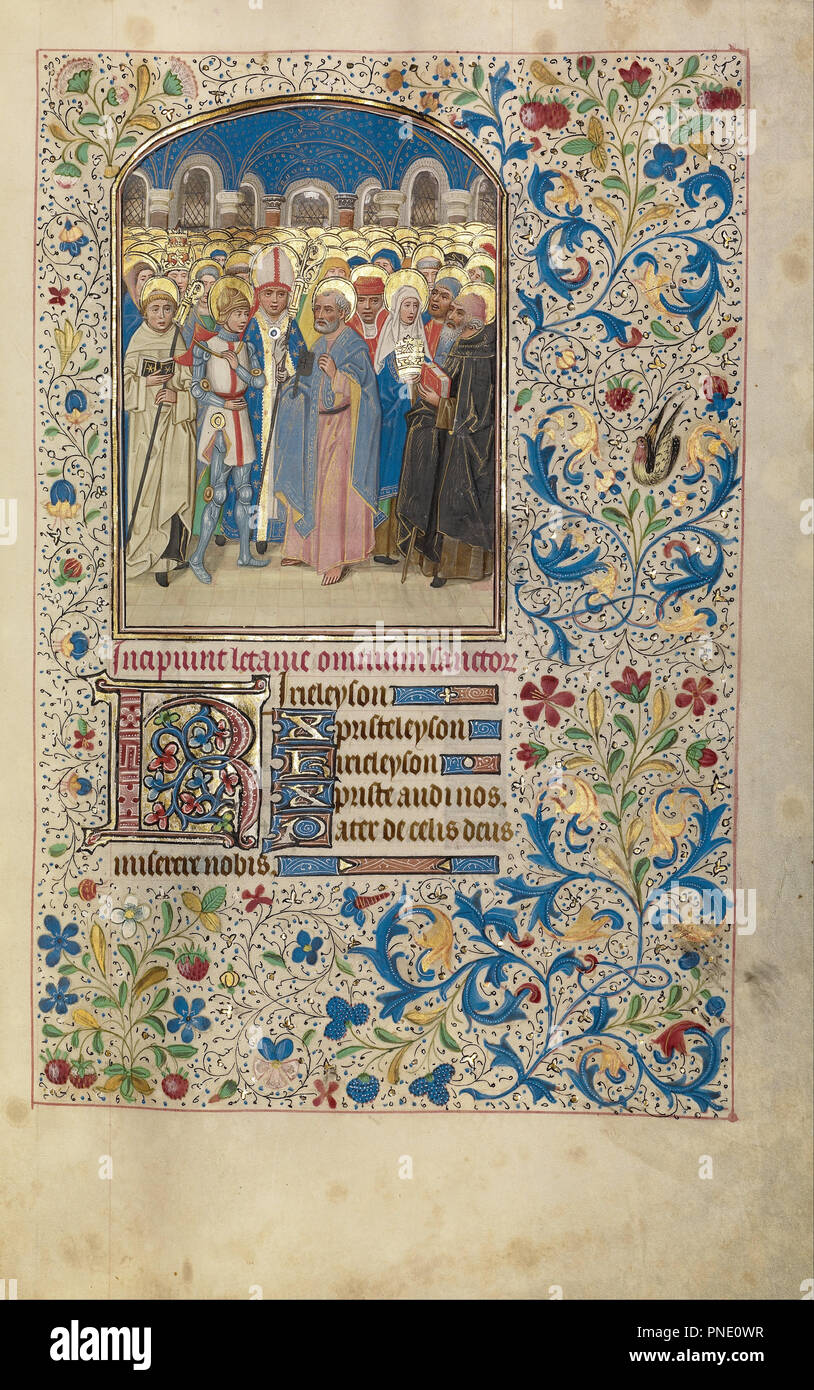 Incipiunt letanie omnium sanctorr
Kirieleyson
Xpristeleyson
Kirieleyson
Xpriste audi nos.
Pater de celis deus
miserere nobis.
alamy
Image ID: PNE0WR
www.alamy.com